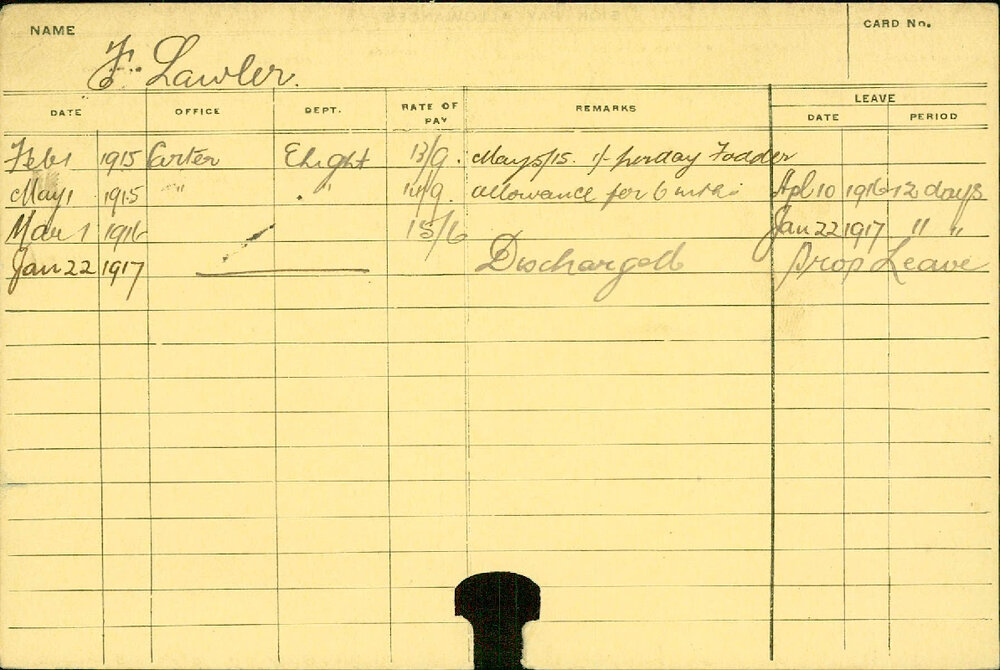 NAME F. Lawler. CARD No.
DATE OFFICE DEPT. RATE OF PAY REMARKS LEAVE
DATE PERIOD
Feb 1 1915 Carter Elight 13/9. May 5/15. 1/- per day Fodder
May 1 1915 " " 14/9. allowance for 6 mths. Apl 10 1916 12 days
Mar 1 1916 15/6 Jan 22 1917 " "
Jan 22 1917 Discharged Prop Leave